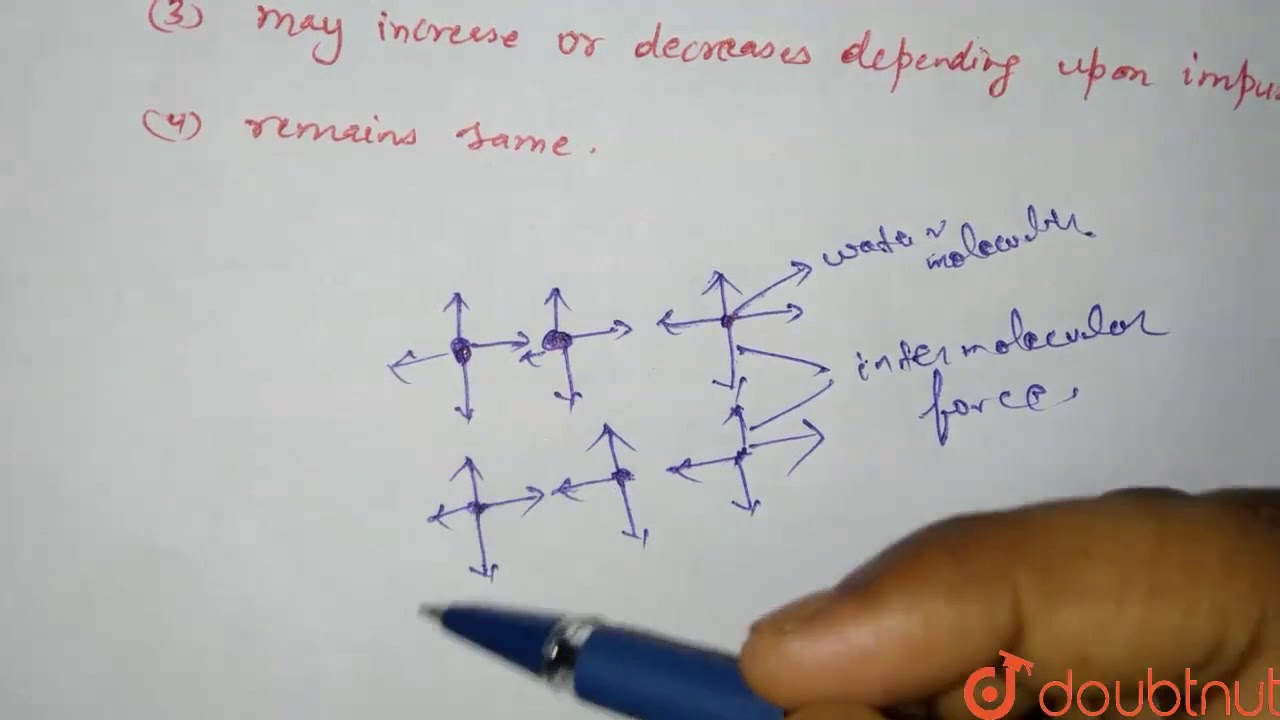 (3) may increase or decreases depending upon impu
(4) remains same.
water
molecules
intermolecular
force
doubtnut